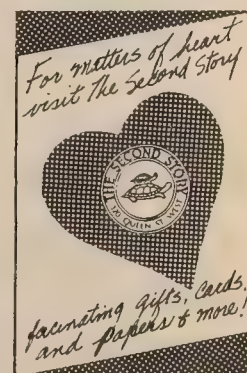 For matters of heart
visit The Second Story
THE SECOND STORY
170 QUEEN ST. WEST
facinating gifts, cards,
and papers & more!